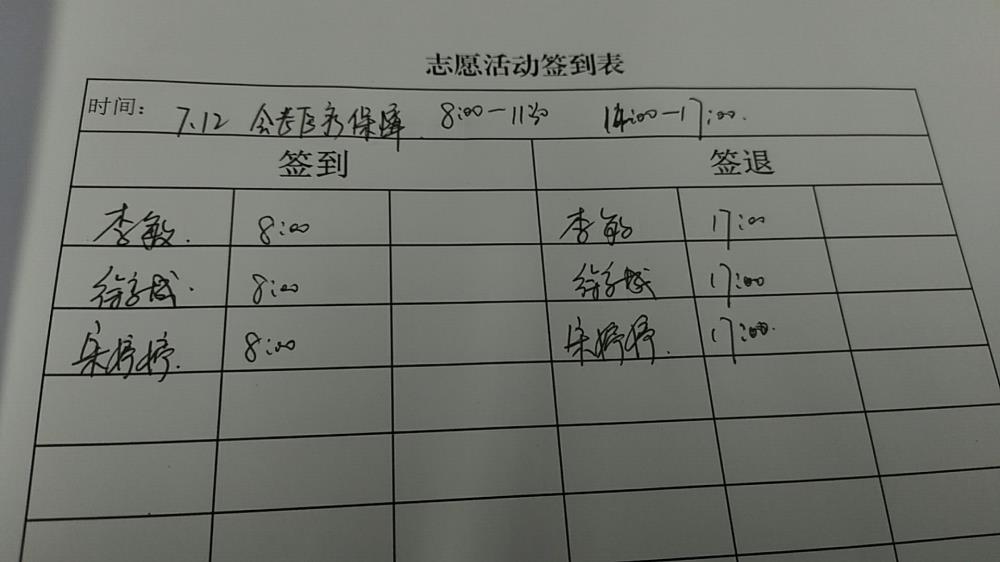 志愿活动签到表
时间: 7.12 会考医疗保障 8:00-11:30 14:00-17:00.
签到 签退
李敏. 8:00 李敏 17:00
徐子成. 8:00 徐子成 17:00
宋婷婷. 8:00 宋婷婷. 17:00.